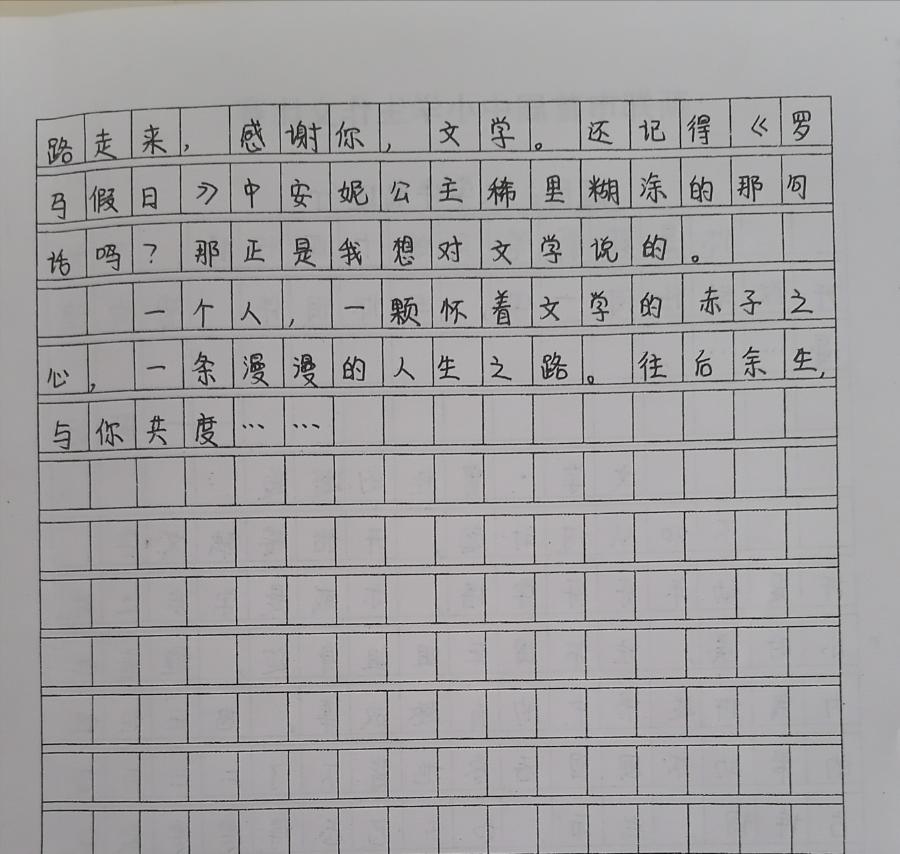 路走来，感谢你，文学。还记得《罗
马假日》中安妮公主稀里糊涂的那句
话吗？那正是我想对文学说的。
一个人，一颗怀着文学的赤子之
心，一条漫漫的人生之路。往后余生，
与你共度……